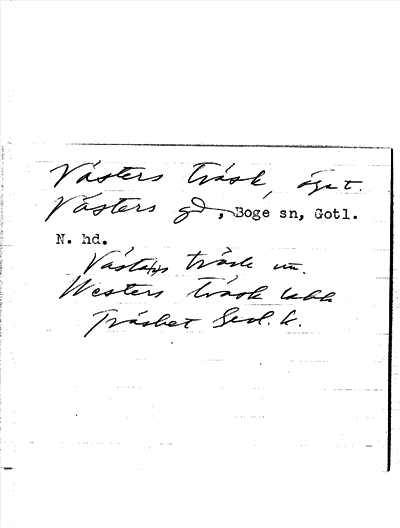 Västers träsk, ägat.
Västers gd, Boge sn, Gotl.
N. hd.
Västers träsk
Westers träsk
Träsket